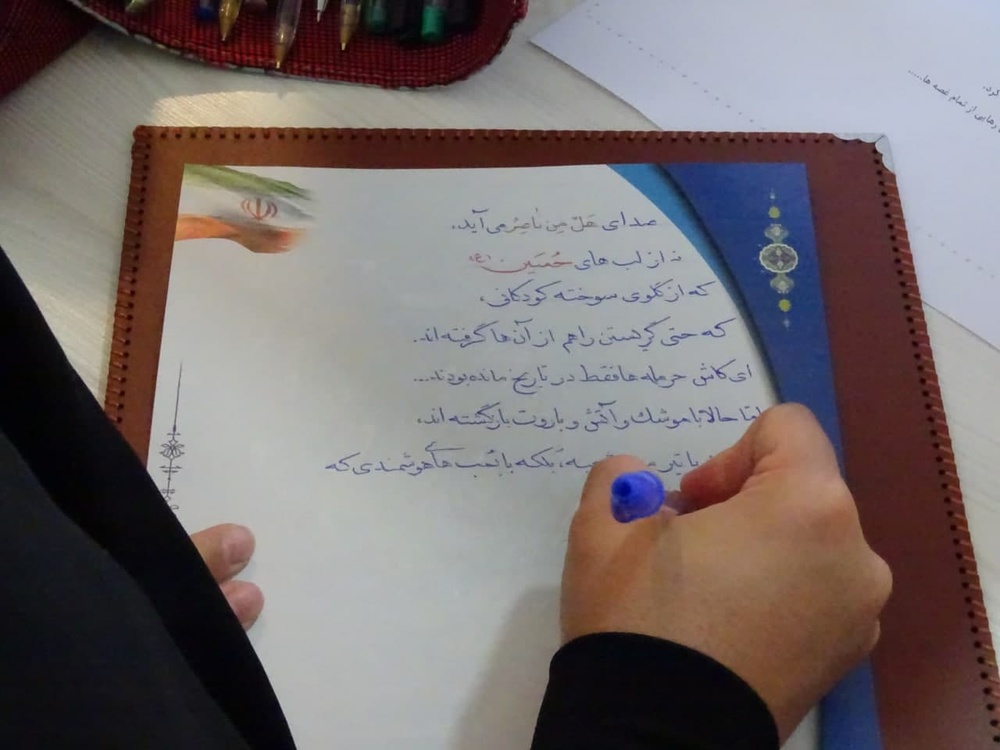 صدای هَلْ مِن ناصِرْ می‌آید،
نه از لب های حُسَین (ع)
که از گلوی سوخته کودکانی،
که حتی گریستن را هم از آن ها گرفته اند.
ای کاش حرمله ها فقط در تاریخ مانده بودند...
امّا حالا با موشک و آتش و باروت بازگشته اند،
با تیر بلکه با بمب های هوشمندی که
کرد.
رهایی از تمام غصه ها.....